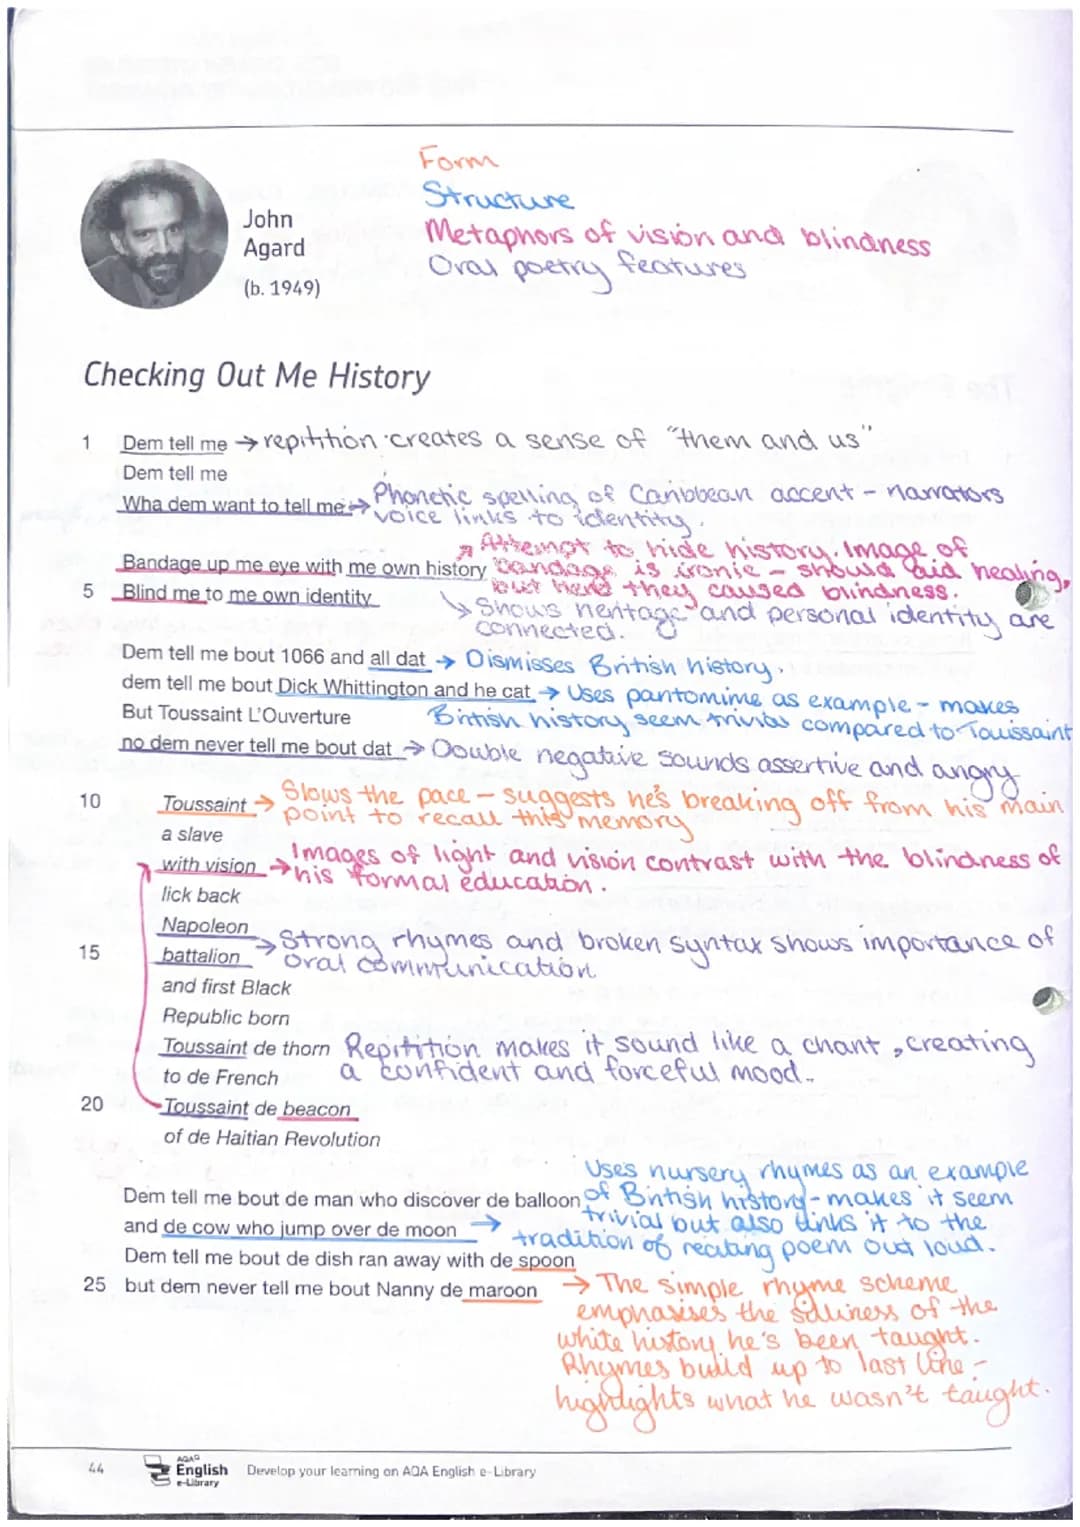 Form
Structure
Metaphors of vision and blindness
Oral poetry features
John
Agard
(b. 1949)
Checking Out Me History
1 Dem tell me → repitition creates a sense of "them and us"
Dem tell me
Wha dem want to tell me → Phonetic spelling of Caribbean accent - narrators
voice links to identity.
Attempt to hide history. Image of
Bandage up me eye with me own history bandage is ironic - should aid healing,
but here they caused blindness.
5 Blind me to me own identity
Shows heritage and personal identity are
connected.
Dem tell me bout 1066 and all dat → Dismisses British history.
dem tell me bout Dick Whittington and he cat → Uses pantomime as example - makes
But Toussaint L'Ouverture British history seem trivial compared to Touissaint
no dem never tell me bout dat → Double negative sounds assertive and angry
10 Toussaint → Slows the pace - suggests he's breaking off from his main
point to recall this memory
a slave
with vision → Images of light and vision contrast with the blindness of
his formal education.
lick back
Napoleon
15 battalion → Strong rhymes and broken syntax shows importance of
oral communication
and first Black
Republic born
Toussaint de thorn Repitition makes it sound like a chant, creating
to de French a confident and forceful mood.
20 Toussaint de beacon
of de Haitian Revolution
Uses nursery rhymes as an example
Dem tell me bout de man who discover de balloon of British history - makes it seem
and de cow who jump over de moon → trivial but also links it to the
tradition of reciting poem out loud.
Dem tell me bout de dish ran away with de spoon
25 but dem never tell me bout Nanny de maroon → The simple rhyme scheme
emphasises the silliness of the
white history he's been taught.
Rhymes build up to last line -
highlights what he wasn't taught.
44
AQA
English
e-Library
Develop your learning on AQA English e-Library